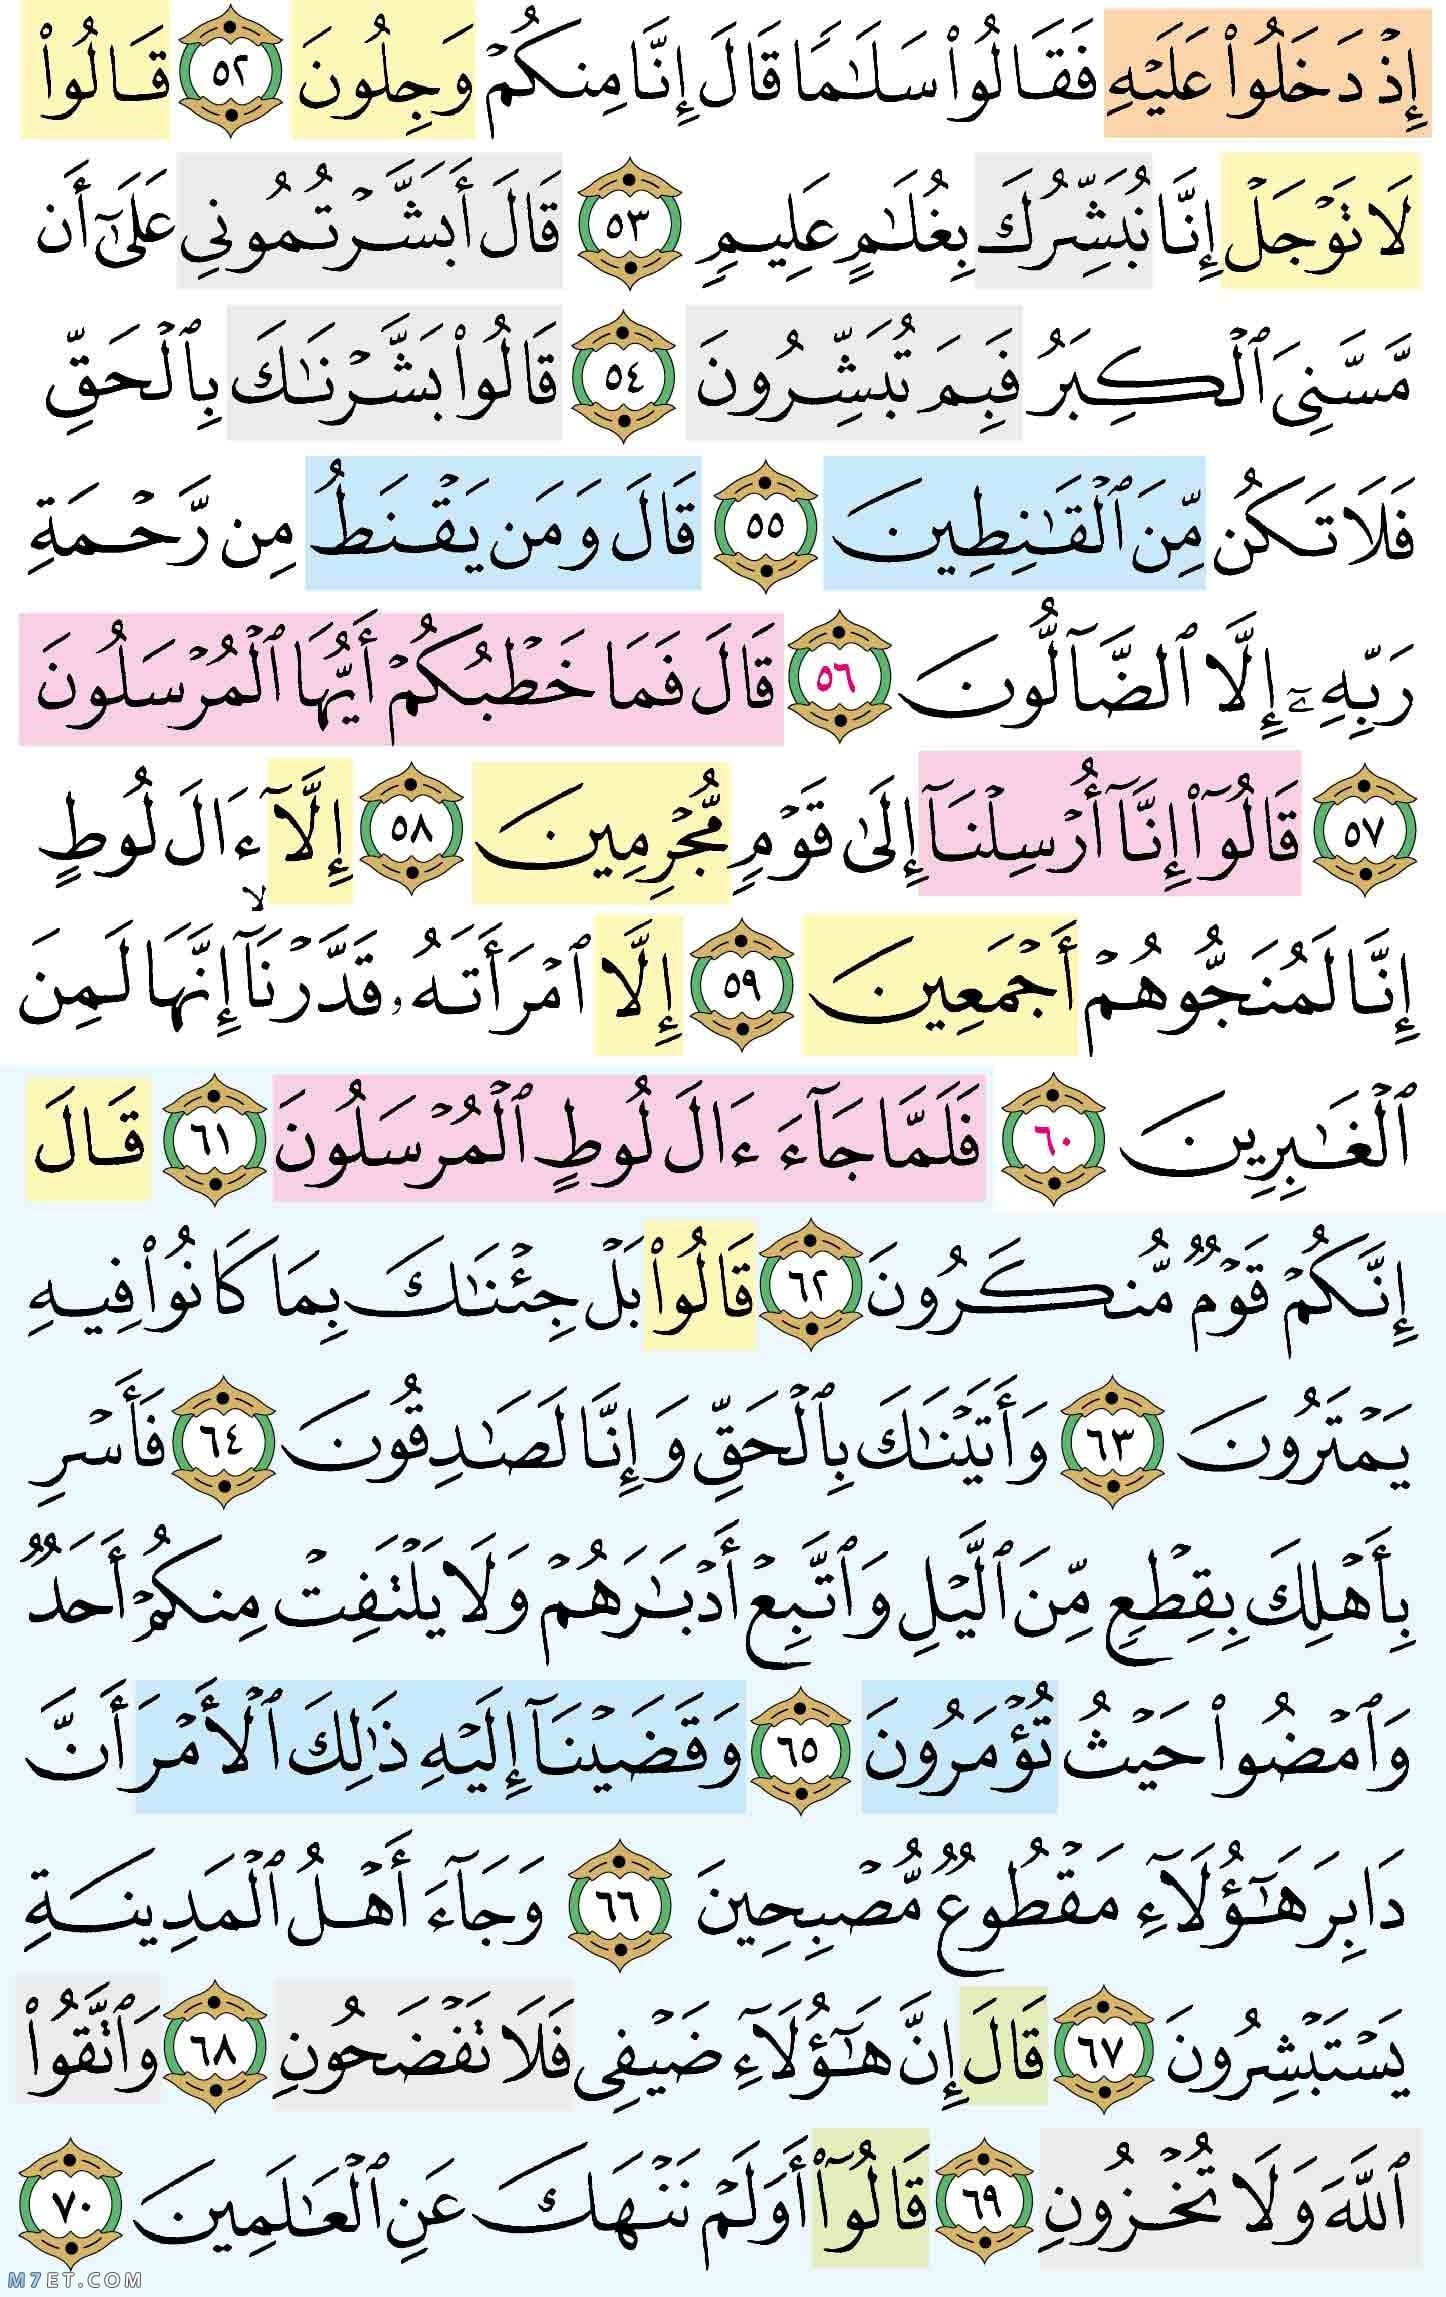 إِذۡ دَخَلُواْ عَلَيۡهِ فَقَالُواْ سَلَٰمٗا قَالَ إِنَّا مِنكُمۡ وَجِلُونَ ٥٢ قَالُواْ
لَا تَوۡجَلۡ إِنَّا نُبَشِّرُكَ بِغُلَٰمٍ عَلِيمٖ ٥٣ قَالَ أَبَشَّرۡتُمُونِي عَلَىٰٓ أَن
مَّسَّنِيَ ٱلۡكِبَرُ فَبِمَ تُبَشِّرُونَ ٥٤ قَالُواْ بَشَّرۡنَٰكَ بِٱلۡحَقِّ
فَلَا تَكُن مِّنَ ٱلۡقَٰنِطِينَ ٥٥ قَالَ وَمَن يَقۡنَطُ مِن رَّحۡمَةِ
رَبِّهِۦٓ إِلَّا ٱلضَّآلُّونَ ٥٦ قَالَ فَمَا خَطۡبُكُمۡ أَيُّهَا ٱلۡمُرۡسَلُونَ
٥٧ قَالُوٓاْ إِنَّآ أُرۡسِلۡنَآ إِلَىٰ قَوۡمٖ مُّجۡرِمِينَ ٥٨ إِلَّآ ءَالَ لُوطٍ
إِنَّا لَمُنَجُّوهُمۡ أَجۡمَعِينَ ٥٩ إِلَّا ٱمۡرَأَتَهُۥ قَدَّرۡنَآ ۙ إِنَّهَا لَمِنَ
ٱلۡغَٰبِرِينَ ٦٠ فَلَمَّا جَآءَ ءَالَ لُوطٍ ٱلۡمُرۡسَلُونَ ٦١ قَالَ
إِنَّكُمۡ قَوۡمٞ مُّنكَرُونَ ٦٢ قَالُواْ بَلۡ جِئۡنَٰكَ بِمَا كَانُواْ فِيهِ
يَمۡتَرُونَ ٦٣ وَأَتَيۡنَٰكَ بِٱلۡحَقِّ وَإِنَّا لَصَٰدِقُونَ ٦٤ فَأَسۡرِ
بِأَهۡلِكَ بِقِطۡعٖ مِّنَ ٱلَّيۡلِ وَٱتَّبِعۡ أَدۡبَٰرَهُمۡ وَلَا يَلۡتَفِتۡ مِنكُمۡ أَحَدٞ
وَٱمۡضُواْ حَيۡثُ تُؤۡمَرُونَ ٦٥ وَقَضَيۡنَآ إِلَيۡهِ ذَٰلِكَ ٱلۡأَمۡرَ أَنَّ
دَابِرَ هَٰٓؤُلَآءِ مَقۡطُوعٞ مُّصۡبِحِينَ ٦٦ وَجَآءَ أَهۡلُ ٱلۡمَدِينَةِ
يَسۡتَبۡشِرُونَ ٦٧ قَالَ إِنَّ هَٰٓؤُلَآءِ ضَيۡفِي فَلَا تَفۡضَحُونِ ٦٨ وَٱتَّقُواْ
ٱللَّهَ وَلَا تُخۡزُونِ ٦٩ قَالُوٓاْ أَوَلَمۡ نَنۡهَكَ عَنِ ٱلۡعَٰلَمِينَ ٧٠
M7ET.COM